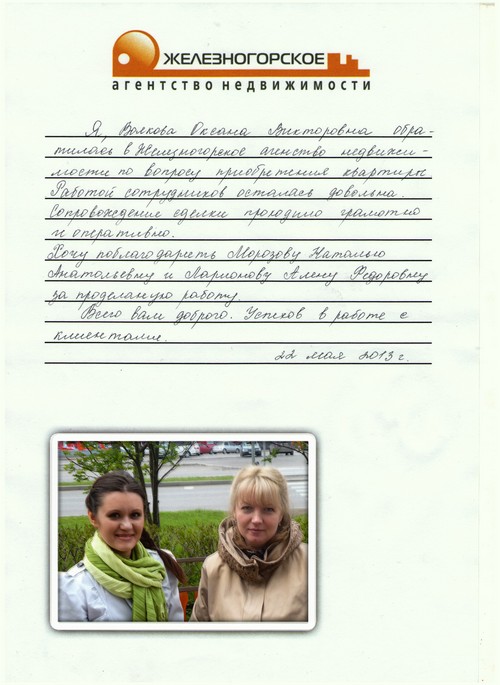 ЖЕЛЕЗНОГОРСКОЕ
агентство недвижимости
Я, Волкова Оксана Викторовна обра-
тилась в Железногорское агенство недвижи-
мости по вопросу приобретения квартиры.
Работой сотрудников осталась довольна.
Сопровождение сделки проходило грамотно
и оперативно.
Хочу поблагодарить Морозову Наталью
Анатольевну и Ларионову Алену Федоровну
за проделаную работу.
Всего вам доброго. Успехов в работе с
клиентами.
22 мая 2013 г.